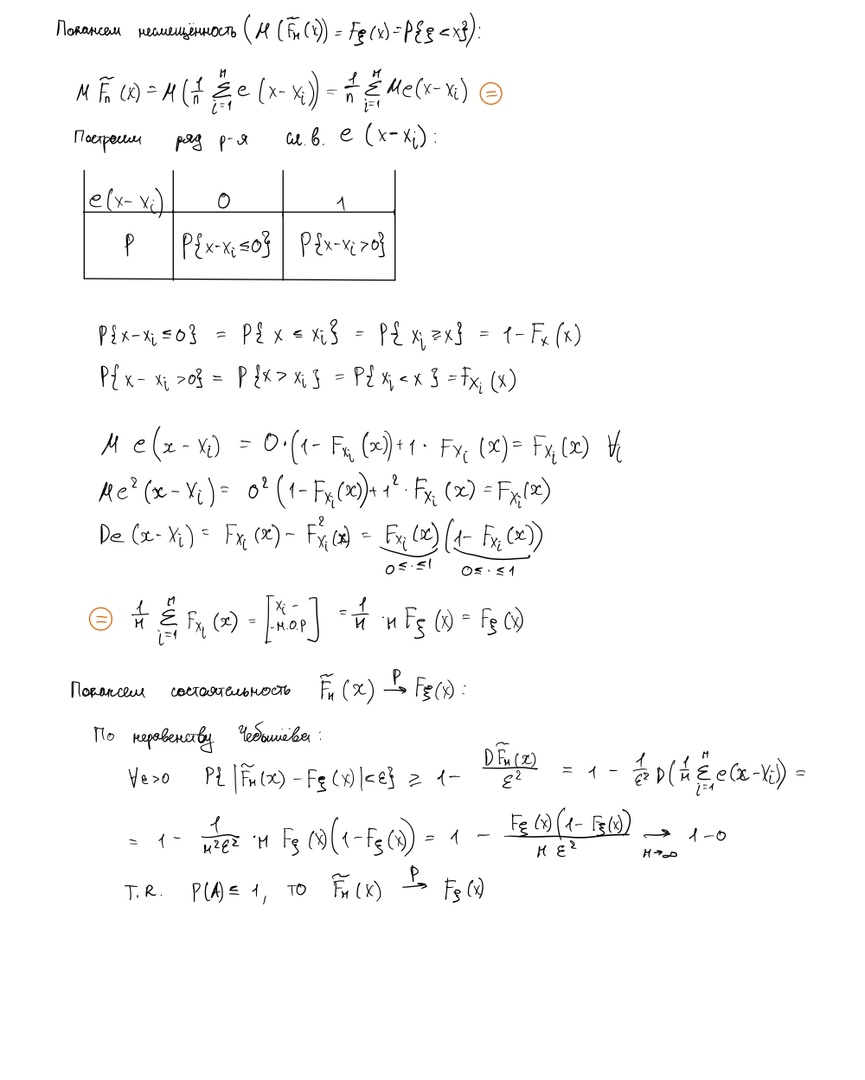 Покажем несмещённость (M(F̃ₙ(x)) = F_ξ(x) = P{ξ < x}):
M F̃ₙ(x) = M(1/n Σ_{i=1}^{n} e(x - xᵢ)) = 1/n Σ_{i=1}^{n} Me(x - xᵢ) ⊜
Построим ряд р-я сл. в. e(x - xᵢ):
e(x - xᵢ) 0 1
P P{x - xᵢ ≤ 0} P{x - xᵢ > 0}
P{x - xᵢ ≤ 0} = P{x ≤ xᵢ} = P{xᵢ ≥ x} = 1 - Fₓ(x)
P{x - xᵢ > 0} = P{x > xᵢ} = P{xᵢ < x} = F_{xᵢ}(x)
M e(x - xᵢ) = 0·(1 - F_{xᵢ}(x)) + 1· F_{xᵢ}(x) = F_{xᵢ}(x) ∀i
Me²(x - xᵢ) = 0²(1 - F_{xᵢ}(x)) + 1²· F_{xᵢ}(x) = F_{xᵢ}(x)
De(x - xᵢ) = F_{xᵢ}(x) - F²_{xᵢ}(x) = F_{xᵢ}(x)(1 - F_{xᵢ}(x))
0 ≤ · ≤ 1 0 ≤ · ≤ 1
⊜ 1/n Σ_{i=1}^{n} F_{xᵢ}(x) = [xᵢ - н.о.р] = 1/n · n F_ξ(x) = F_ξ(x)
Покажем состоятельность F̃ₙ(x) →ᴾ F_ξ(x):
По неравенству Чебышёва:
∀ε>0 P{|F̃ₙ(x) - F_ξ(x)| < ε} ≥ 1 - DF̃ₙ(x)/ε² = 1 - 1/ε² D(1/n Σ_{i=1}^{n} e(x - xᵢ)) =
= 1 - 1/(n²ε²) · n F_ξ(x)(1 - F_ξ(x)) = 1 - F_ξ(x)(1 - F_ξ(x))/(n ε²) →_{n→∞} 1 - 0
Т.к. P(A) ≤ 1, то F̃ₙ(x) →ᴾ F_ξ(x)